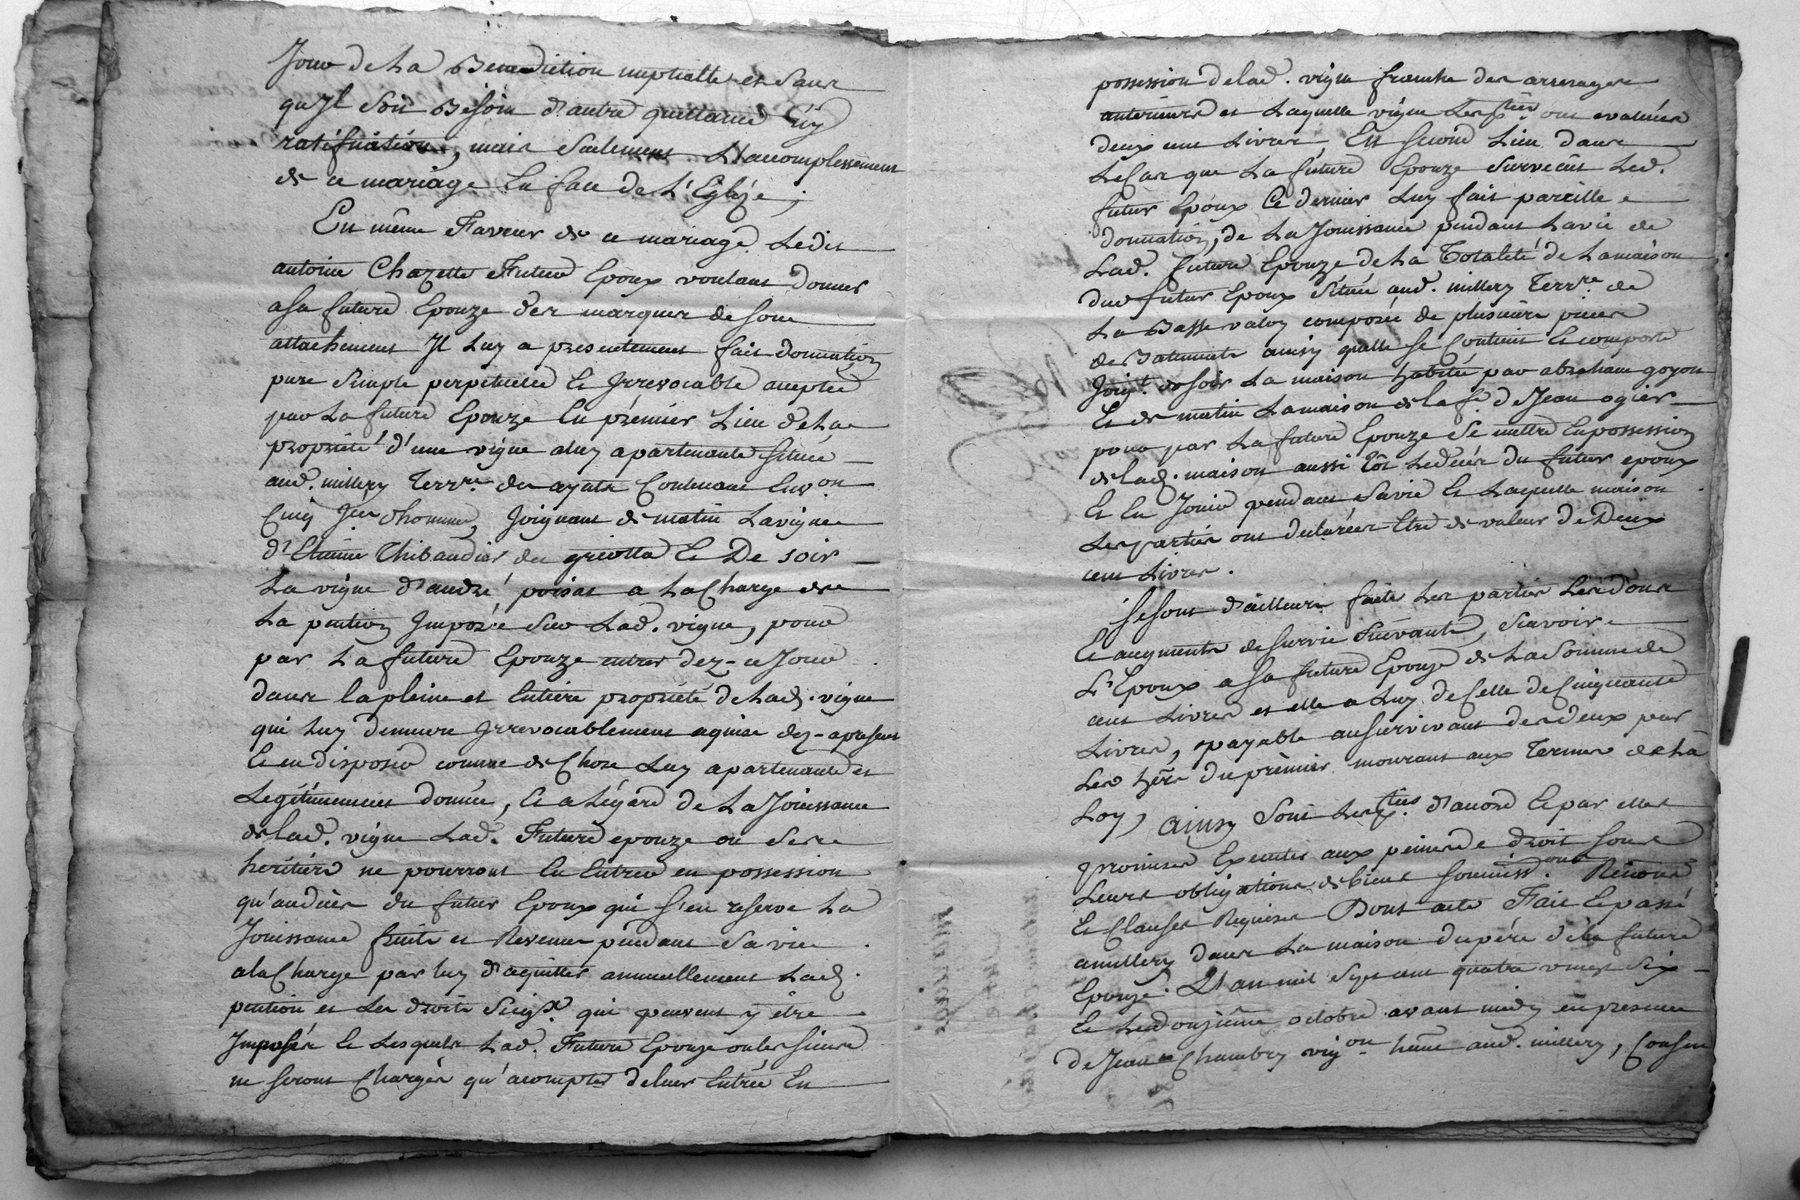 Jour de La Benediction nuptialle et sans
qu'Il soit Besoin d'autre quittance Ny
ratiffication, mais seulement L'accomplissement
de ce mariage En face de L'Eglize ;
En même Faveur de ce mariage Ledit
antoine Chazette Futur Epoux voulant donner
a sa future Epouze des marques de son
attachement Il Luy a presentement fait donnation
pure simple perpetuelle Et Irrevocable acceptée
par La future Epouze En prémier Lieu de La
propriété d'une vigne a luy apartenante située
aud. millery Terr.re des ayats Contenant Env.on
Cinq J.ées d'homme, Joignant de matin La vigne
d'Etienne Thibaudier du griotta Et De soir
La vigne d'andré poizat a La Charge de
La pention Imposée sur Lad. vigne, pour
par La future Epouze entrer dez-ce Jour
dans la pleine et Entiere propriété de Lad. vigne
qui Luy demeure Irrevocablement aquise dez-apresent
Et en disposer comme de Chose Luy apartenante et
Legitimement donnée, Et a Légard de La Jouissance
de lad. vigne Lad. Future epouze ou ses
heritiers ne pourront En Entrer en possession
qu'au décès du futur Epoux qui s'en reserve La
Jouissance fruits et Revenus pendant sa vie
a la Charge par luy d'aquitter annuellement Lad.
pention et Les droits Seig.x qui peuvent y être
Imposés Et Lesquels Lad. Future Epouze ou les siens
ne seront Chargés qu'acompter de leur Entrée En
possession de lad. vigne franche des arrerages
anterieurs et Laquelle vigne Les p.ties ont evaluée
deux cent Livres, En second Lieu dans
Le Cas que La future Epouze survecut Led.
futur Epoux Ce dernier Luy fait pareille
donnation, de La Jouissance pendant La vie de
Lad. future Epouze de La Totalité de La maison
dud futur Epoux située aud. millery Terr.re de
La Basse valoy composée de plusieurs pieces
de Batiments ainsy qu'elle se Contient Et comporte
Joig.t de soir La maison habitée par abraham goyon
Et de matin La maison de la f.e de Jean ogier
pour par La future Epouze se mettre En possession
de lad. maison aussi tôt Le décés du futur epoux
Et En Jouir pendant sa vie Et Laquelle maison
Les parties ont declarées Etre de valeur de Deux
cent Livres.
Se sont d'ailleurs faits Les parties Les dons
Et augments de survie suivants, Sçavoir
L'Epoux a sa future Epouze de La somme de
cent Livres et elle a Luy de Celle de Cinquante
Livres, payable au survivant des deux par
Les hérs du prémier mourant aux Termes de La
Loy, ainsy sont Les p.ties d'accord Et par elles
promises Executer aux peines de droit sous
Leurs obligations de biens soumiss.ons Renonc
Et Clauses Requises Dont acte Fait Et passé
a millery dans La maison du pére de la future
Epouze. L'an mil sept cent quatre vingt six
Et Le douzième octobre avant midy en presence
de Jean Chambry vig.on hãnt aud. millery, Consen